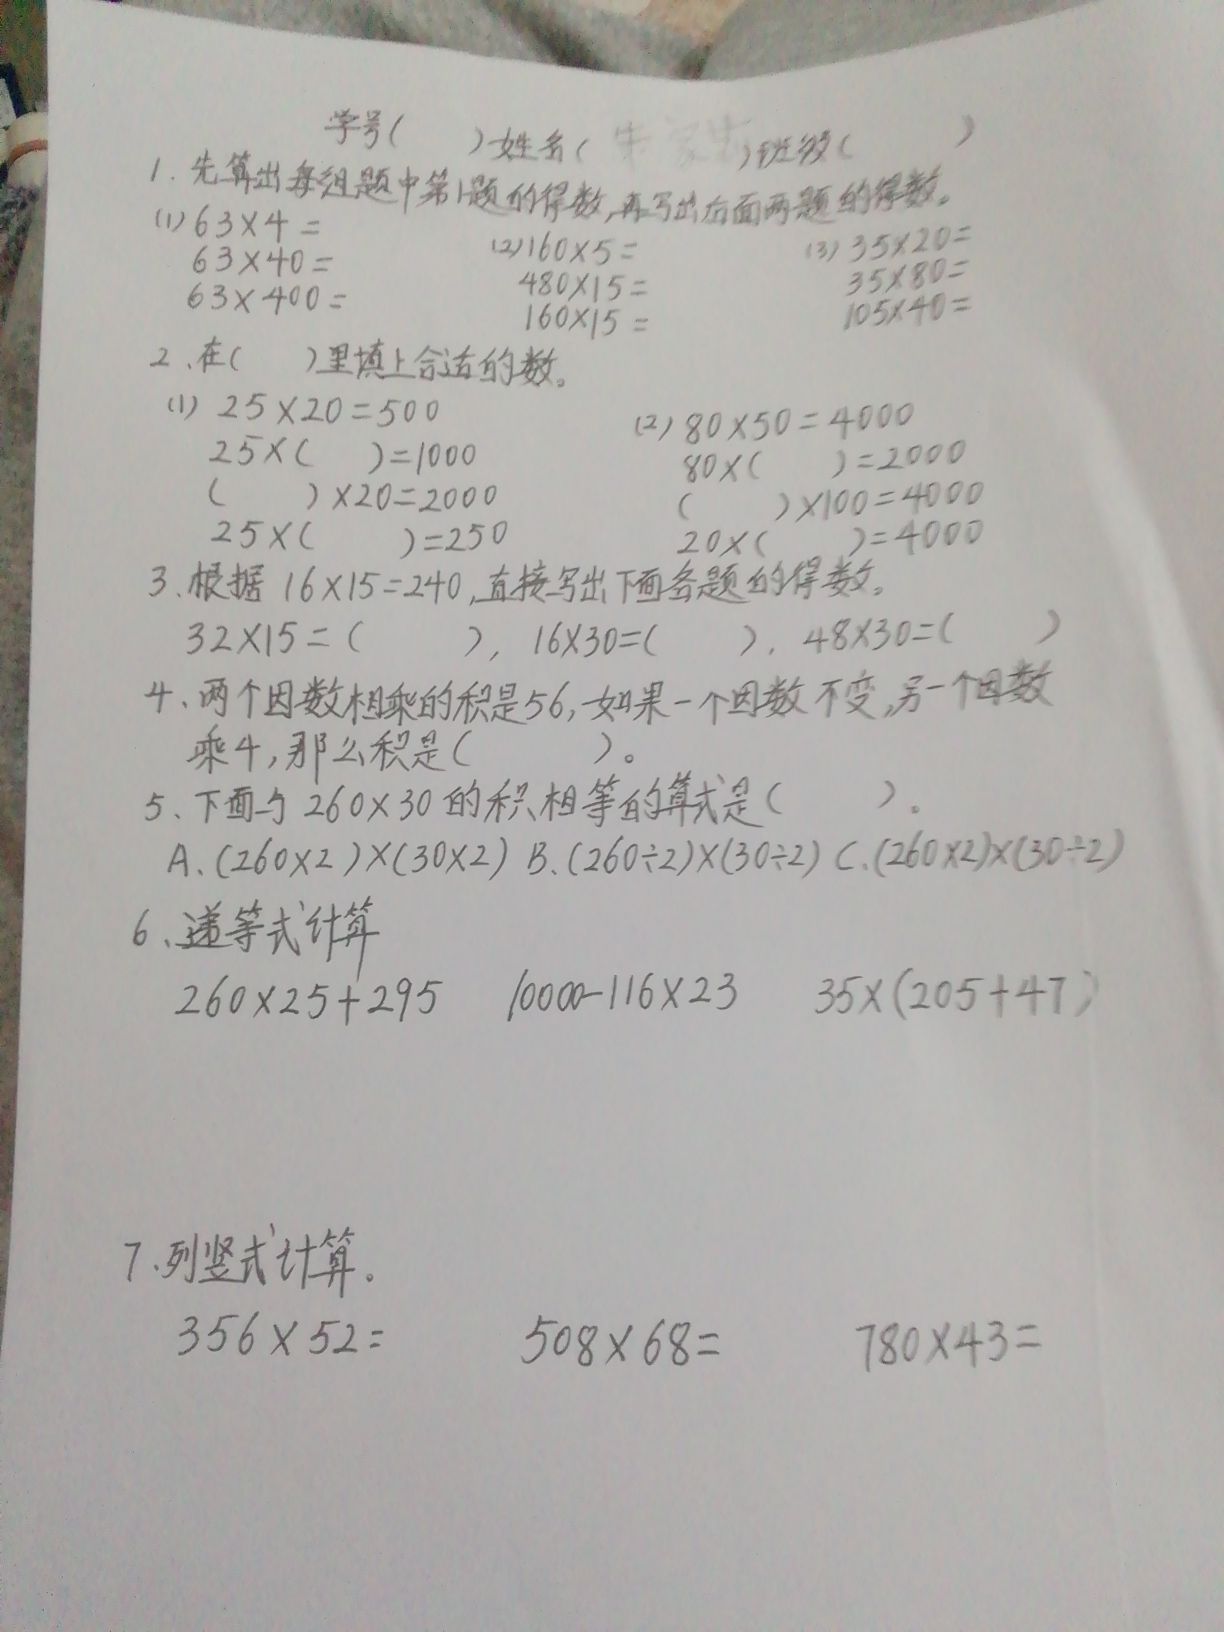 学号(    )姓名(    )班级(    )
1.先算出每组题中第1题的得数,再写出后面两题的得数。
(1)63×4=    (2)160×5=    (3)35×20=
63×40=    480×15=    35×80=
63×400=    160×15=    105×40=
2、在(    )里填上合适的数。
(1) 25×20=500    (2)80×50=4000
25×(    )=1000    80×(    )=2000
(    )×20=2000    (    )×100=4000
25×(    )=250    20×(    )=4000
3、根据16×15=240,直接写出下面各题的得数。
32×15=(    ), 16×30=(    ), 48×30=(    )
4、两个因数相乘的积是56,如果一个因数不变,另一个因数
乘4,那么积是(    )。
5、下面与260×30的积相等的算式是(    )。
A、(260×2)×(30×2) B、(260÷2)×(30÷2) C、(260×2)×(30÷2)
6、递等式计算
260×25+295    10000-116×23    35×(205+47)
7、列竖式计算。
356×52=    508×68=    780×43=